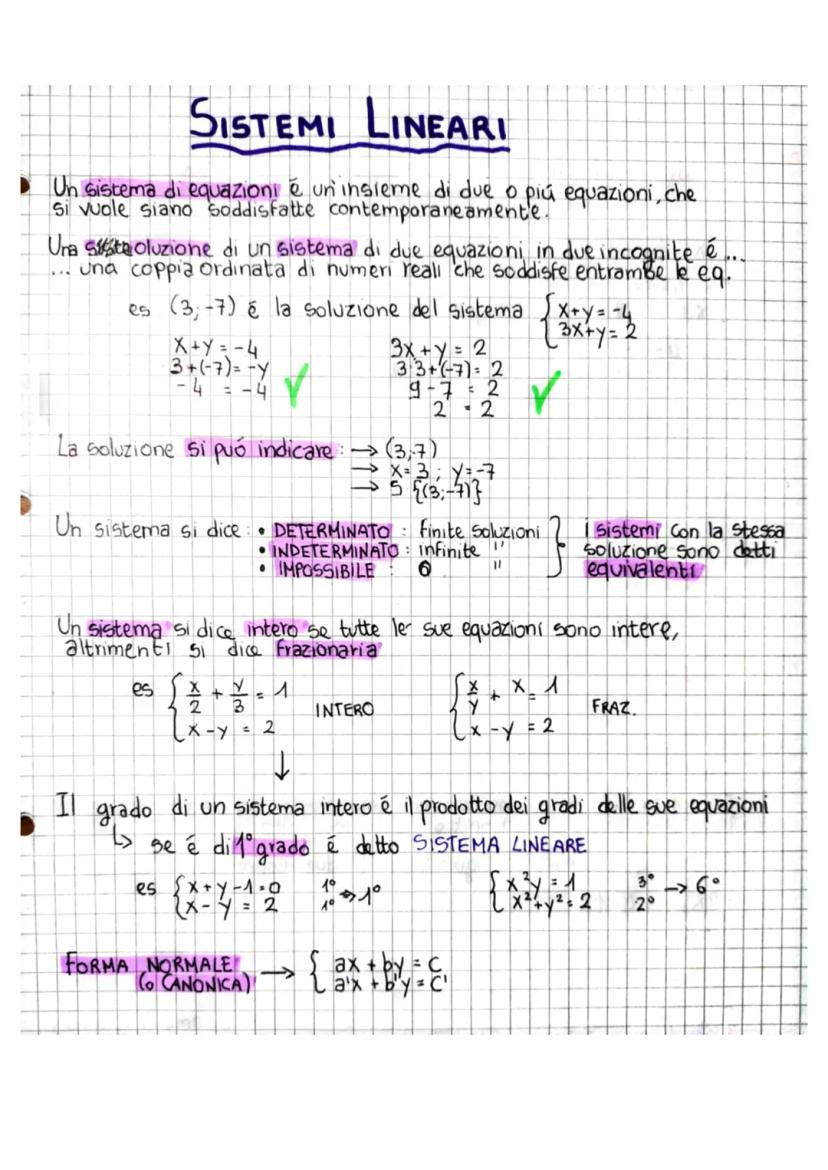 SISTEMI LINEARI
Un sistema di equazioni é un'insieme di due o piú equazioni, che
si vuole siano soddisfatte contemporaneamente.
Una soluzione di un sistema di due equazioni in due incognite é ...
... una coppia ordinata di numeri reali che soddisfe entrambe le eq.
es (3;-7) é la soluzione del sistema { x+y = -4
3x+y = 2
x+y = -4 3x+y = 2
3+(-7) = -y 3·3+(-7) = 2
-4 = -4 √ 9-7 = 2 √
2 = 2
La soluzione si puó indicare : → (3;-7)
→ x=3 ; y=-7
→ S {(3;-7)}
Un sistema si dice : • DETERMINATO : finite soluzioni } i sistemi con la stessa
• INDETERMINATO : infinite " soluzione sono detti
• IMPOSSIBILE : 0 " equivalenti
Un sistema si dice intero se tutte le sue equazioni sono intere,
altrimenti si dice frazionaria
es { x/2 + y/3 = 1 INTERO { x/y + x = 1 FRAZ.
x-y = 2 x-y = 2
↓
Il grado di un sistema intero é il prodotto dei gradi delle sue equazioni
↳ se é di 1° grado é detto SISTEMA LINEARE
es { x+y-1=0 1° ⇒ 1° { x²y = 1 3° → 6°
x-y = 2 1° x²+y² = 2 2°
FORMA NORMALE → { ax + by = c
(o CANONICA) a'x + b'y = c'